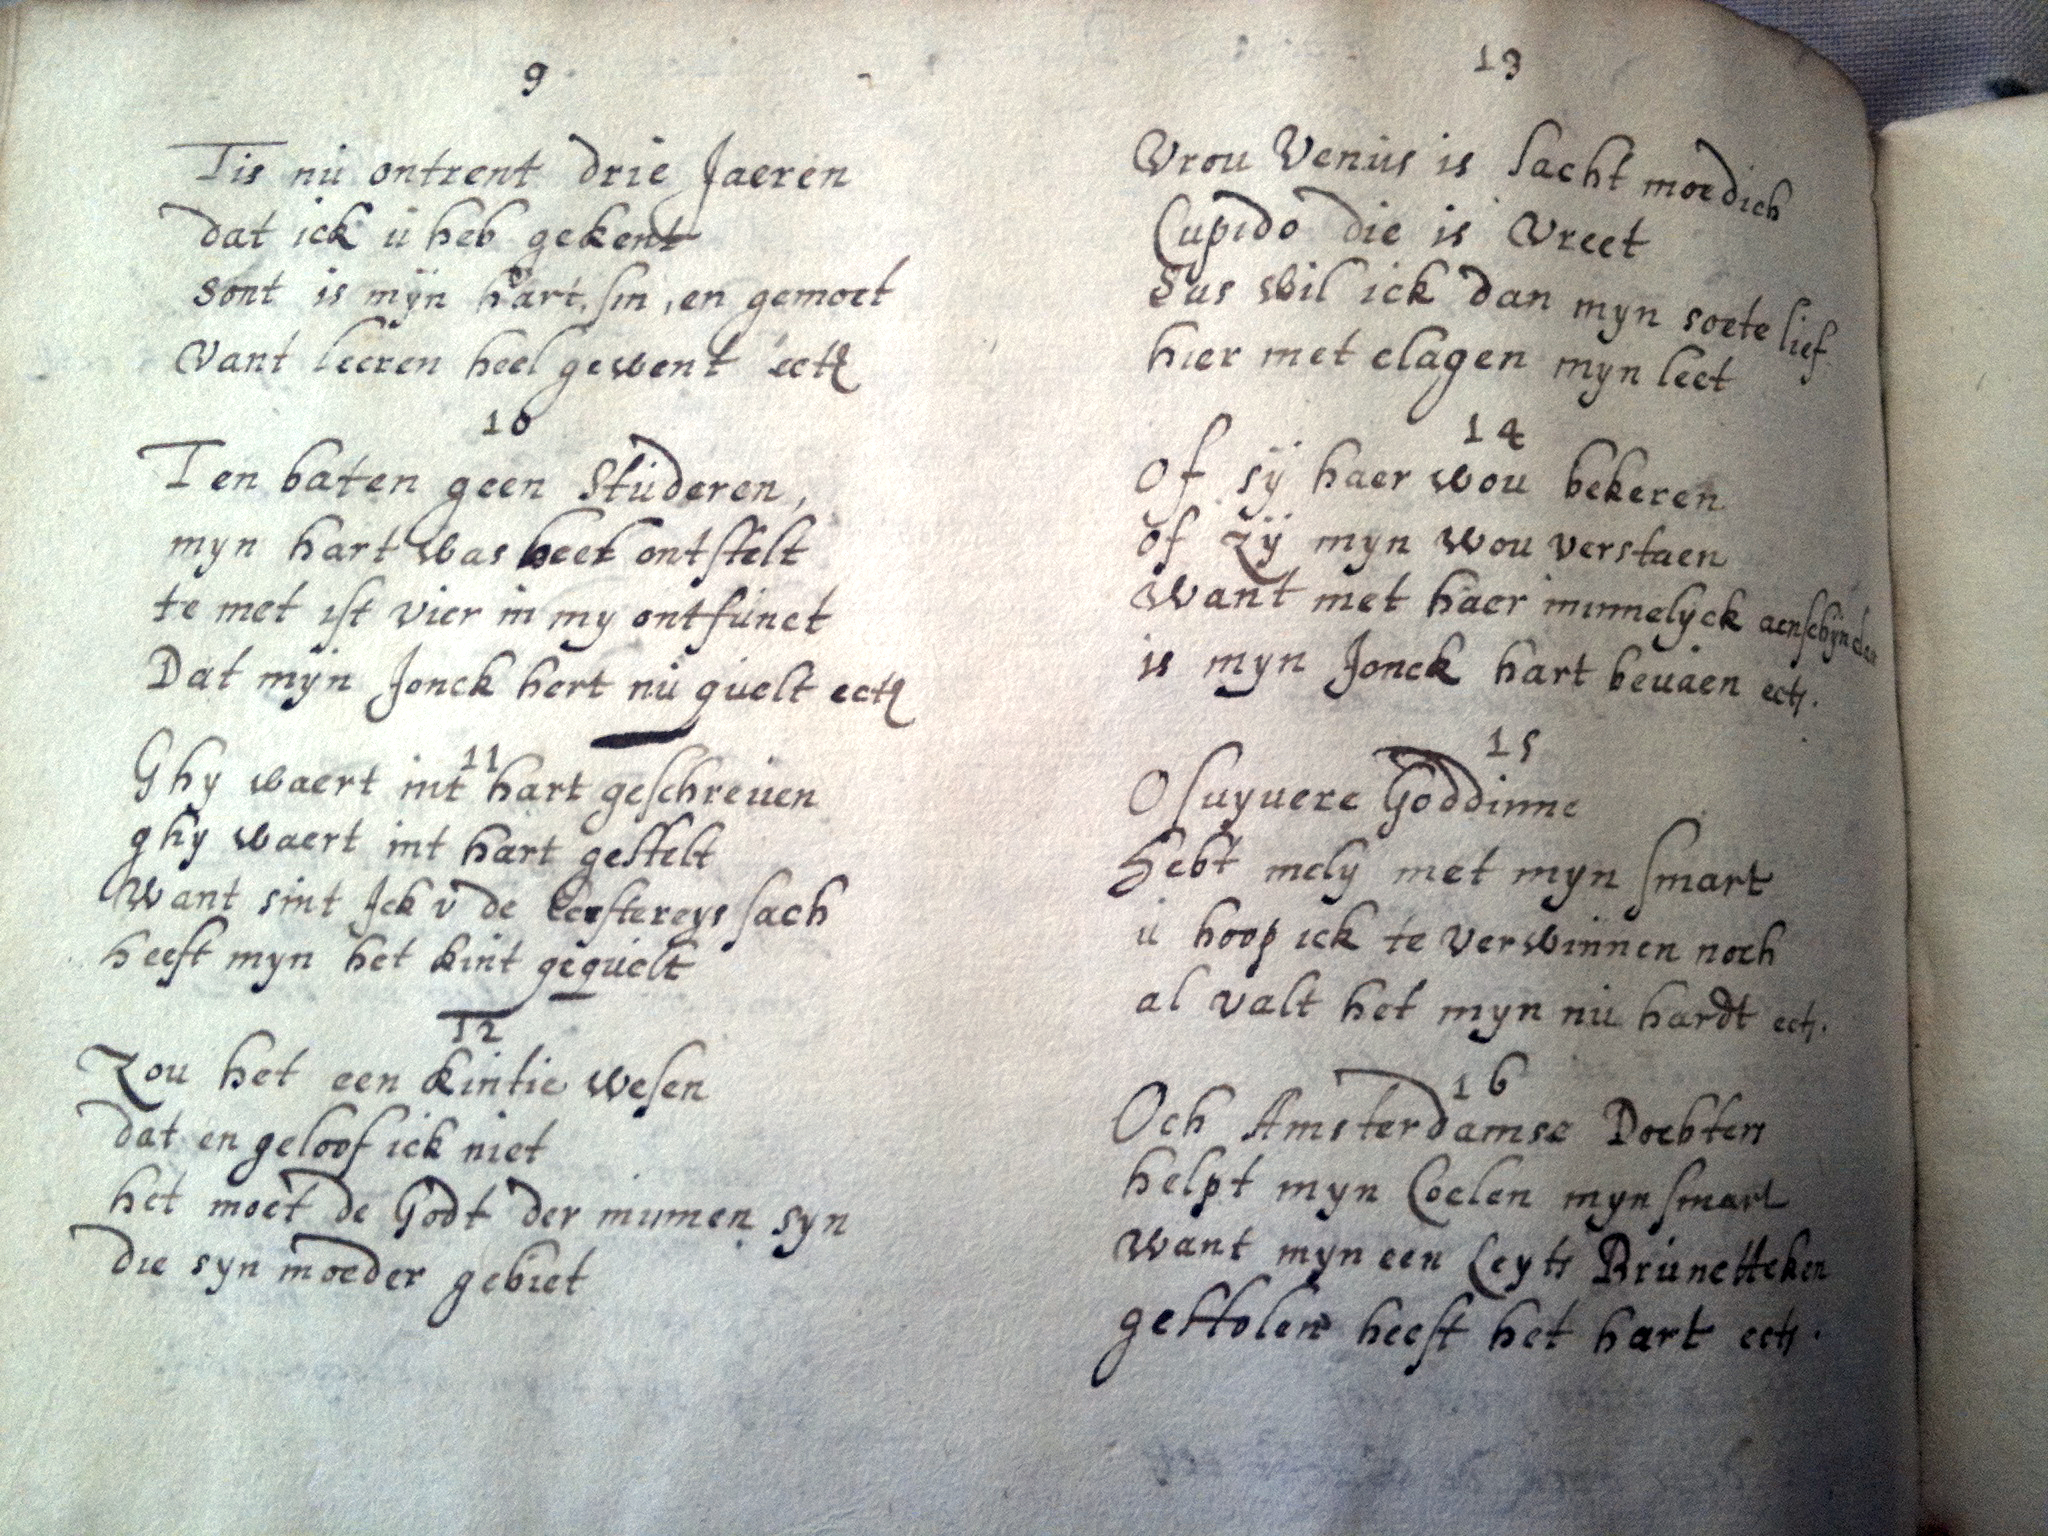 9
Tis nú ontrent drie Jaeren
dat ick ú heb gekent
sont is mÿn hart, sin, en gemoet
Vant leeren heel gewent ectꝭ
10
Ten baten geen Stúderen,
myn hart was heel ontstelt
te met ist vier in my ontfúnct
Dat mÿn Jonck hert nú qúelt ectꝭ
11
Ghy waert int hart geschreuen
ghy waert int hart gestelt
Want sint Jck v de eerstereys sach
heeft myn het kint geqúelt
12
Zou het een kintie wesen
dat en geloof ick niet
het moet de Godt der minnen syn
die syn moeder gebiet
13
Vrou Venús is sacht moedich
Cupido die is Vreet
Sus wil ick dan myn soete lief
hier met clagen myn leet
14
Of sÿ haer wou bekeren
of zÿ myn wou verstaen
Want met haer minnelyck
is myn Jonck hart beuaen ectꝭ.
15
O suyuere Goddinne
Hebt mely met myn smart
ú hoop ick te verwinnen noch
al valt het myn nú hardt ectꝭ.
16
Och Amsterdamse Dochters
helpt myn Coelen myn smart
Want myn een Leyts Brúnetteken
gestolen heeft het hart ectꝭ.